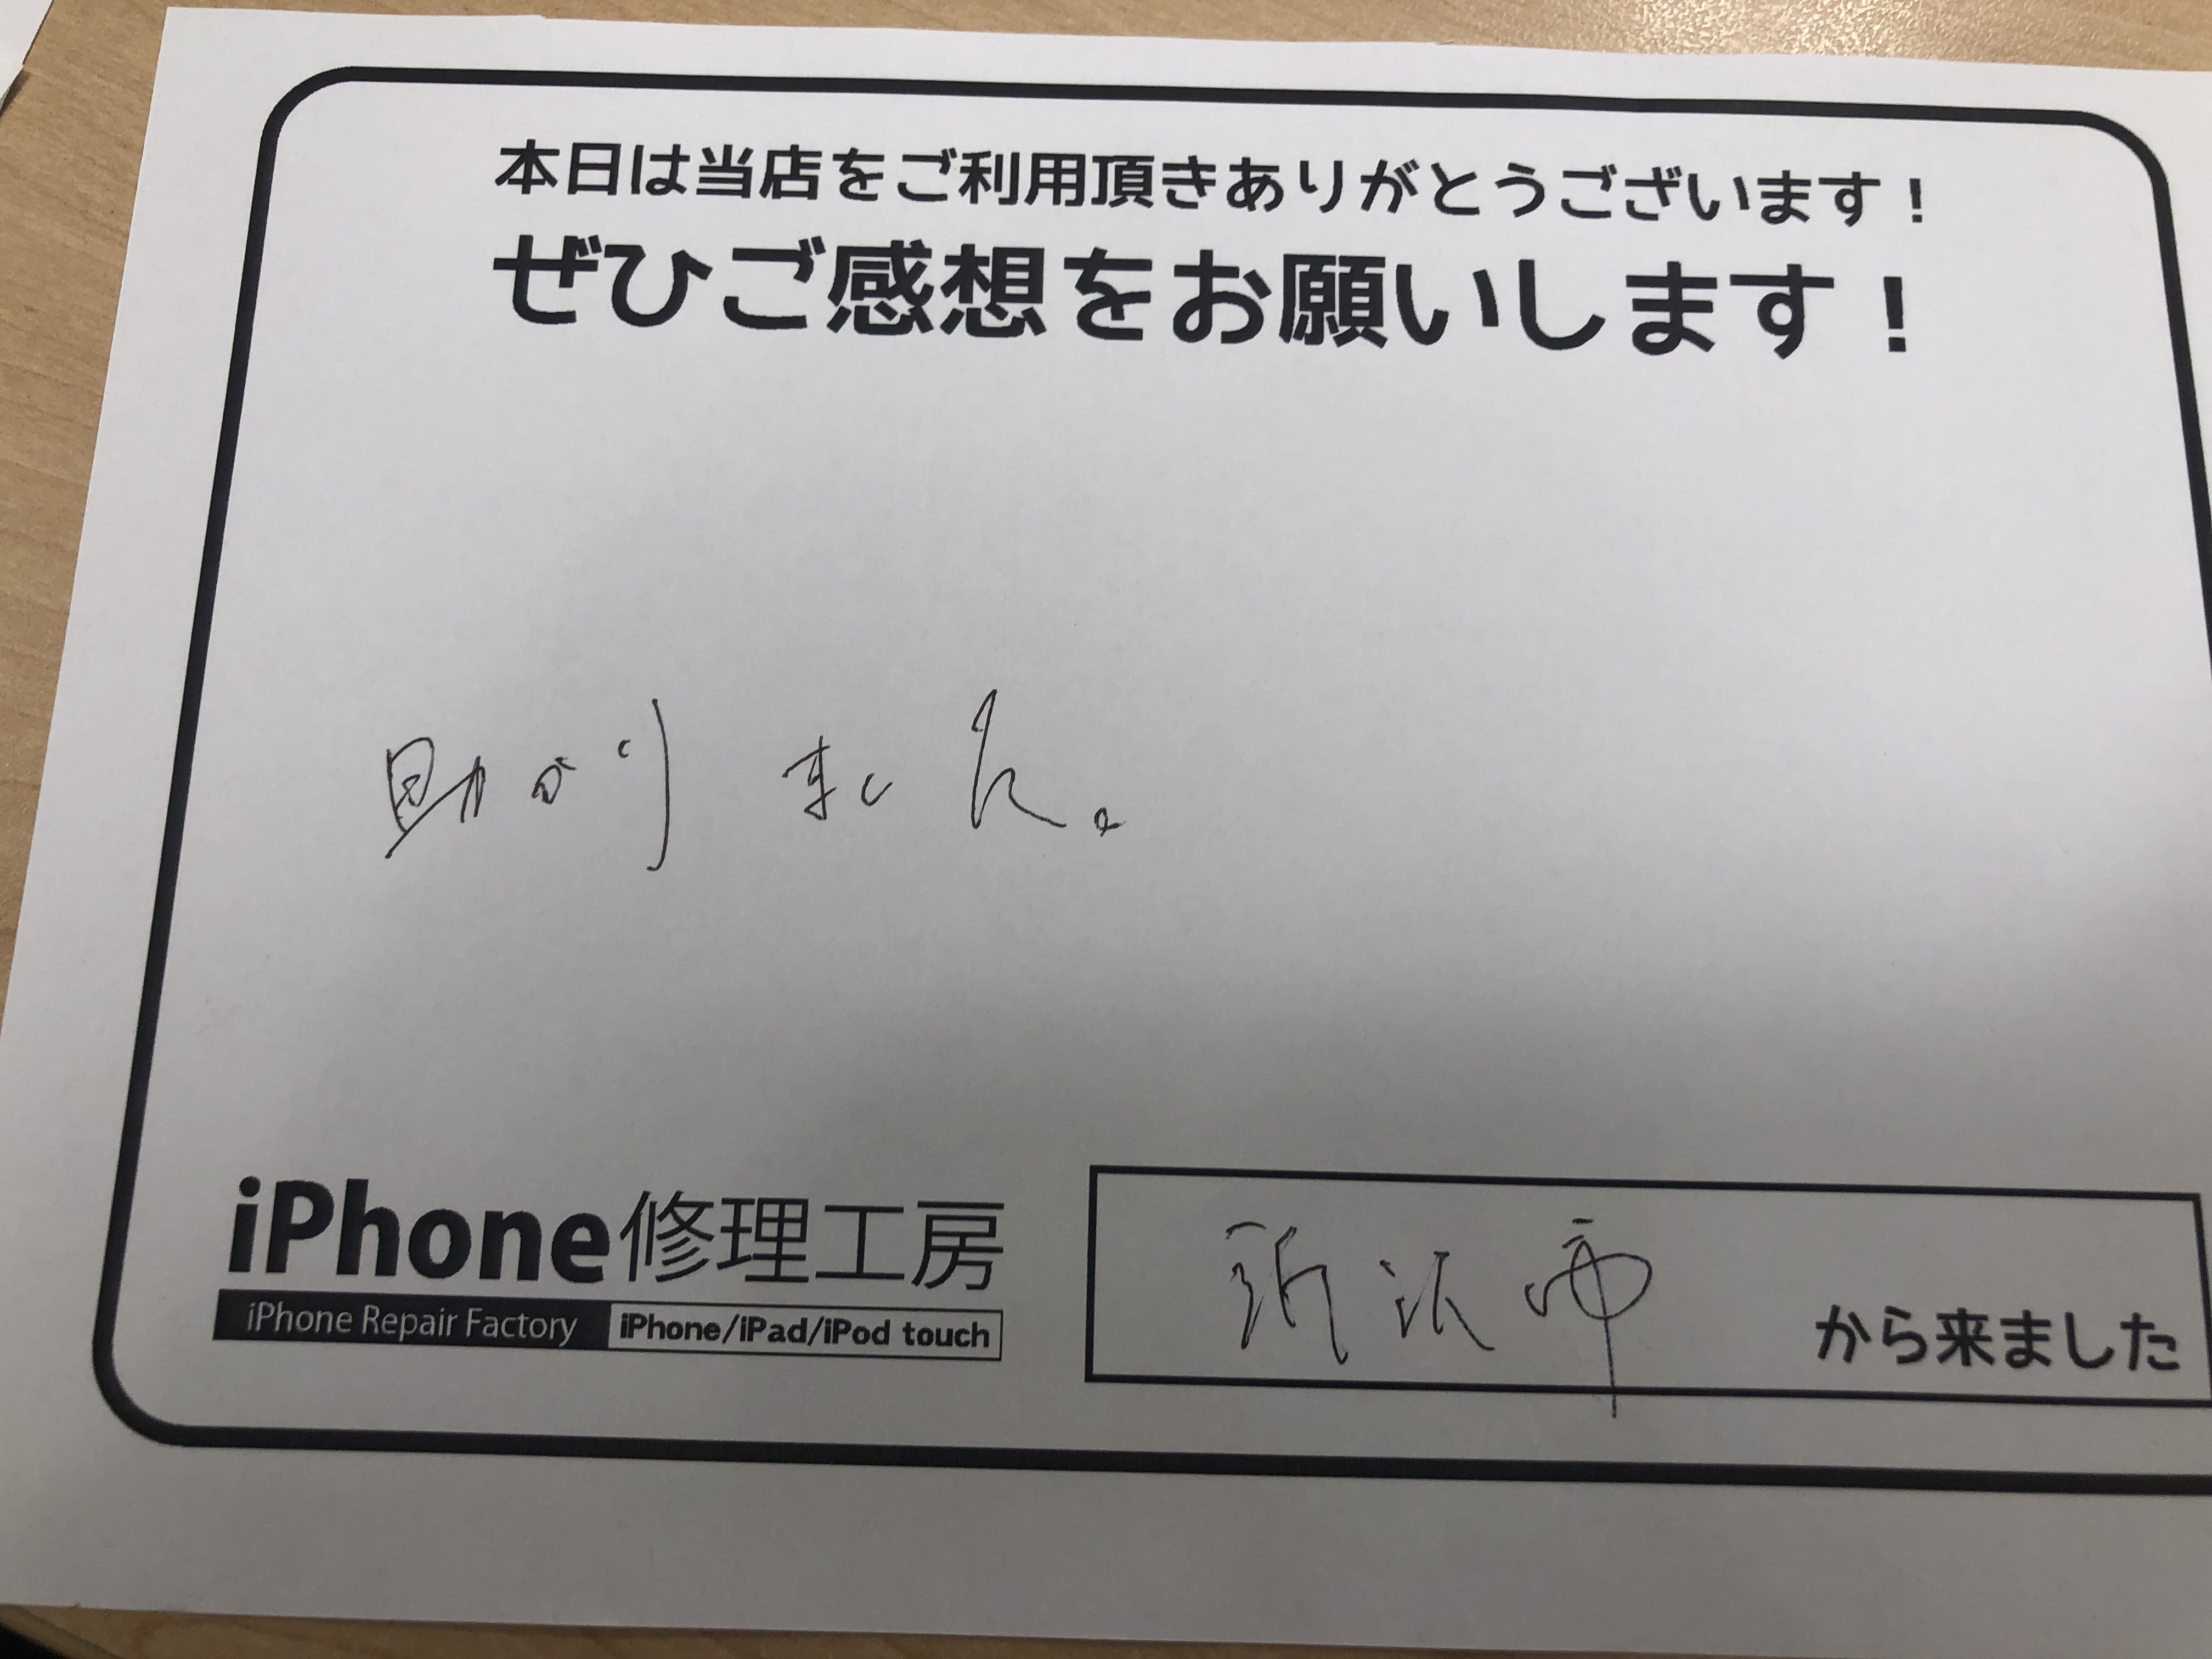 本日は当店をご利用頂きありがとうございます！
ぜひご感想をお願いします！
助かりました。
iPhone修理工房
iPhone Repair Factory iPhone/iPad/iPod touch
所沢市 から来ました